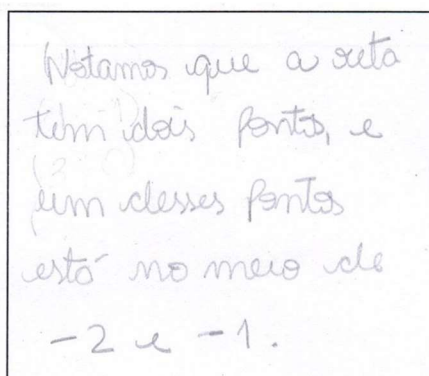 Notamos que a reta
tem dois pontos, e
um desses pontos
está no meio de
-2 e -1.